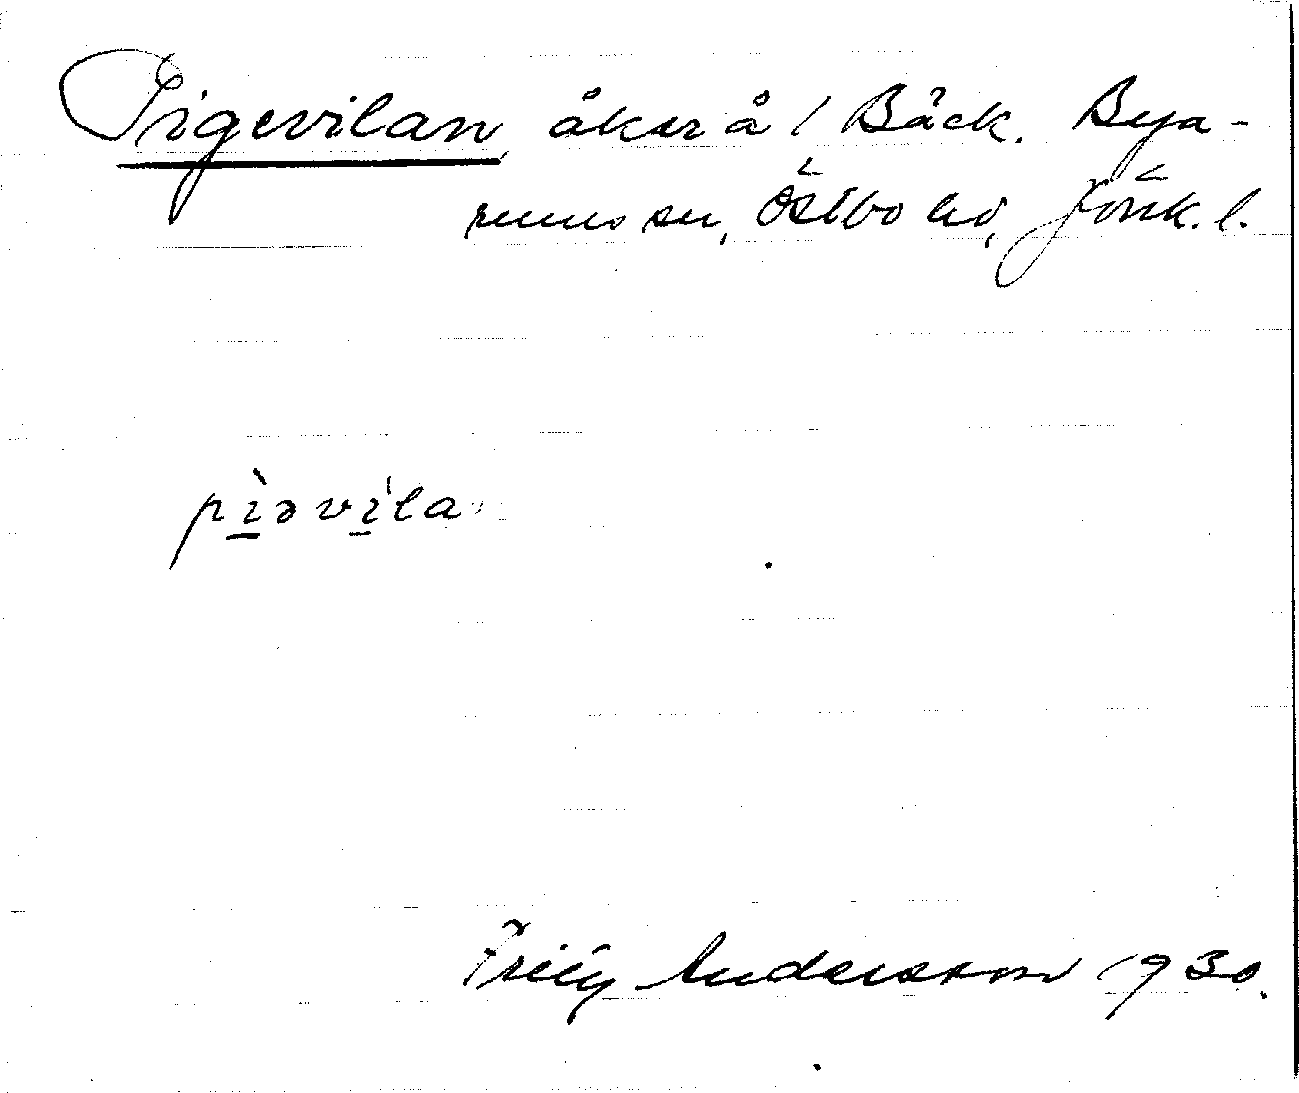 Pigevilan, åker å / Bäck. Bya-
rums sn, Östbo hd, Jönk. l.
pìəvíla
Frity Andersson 1930.